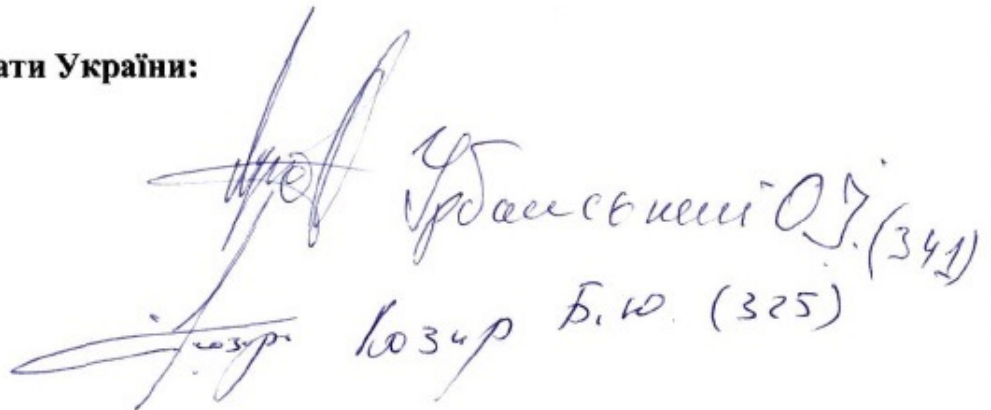 ати України:
Урбанський О.І. (341)
Козир Б.Ю. (325)